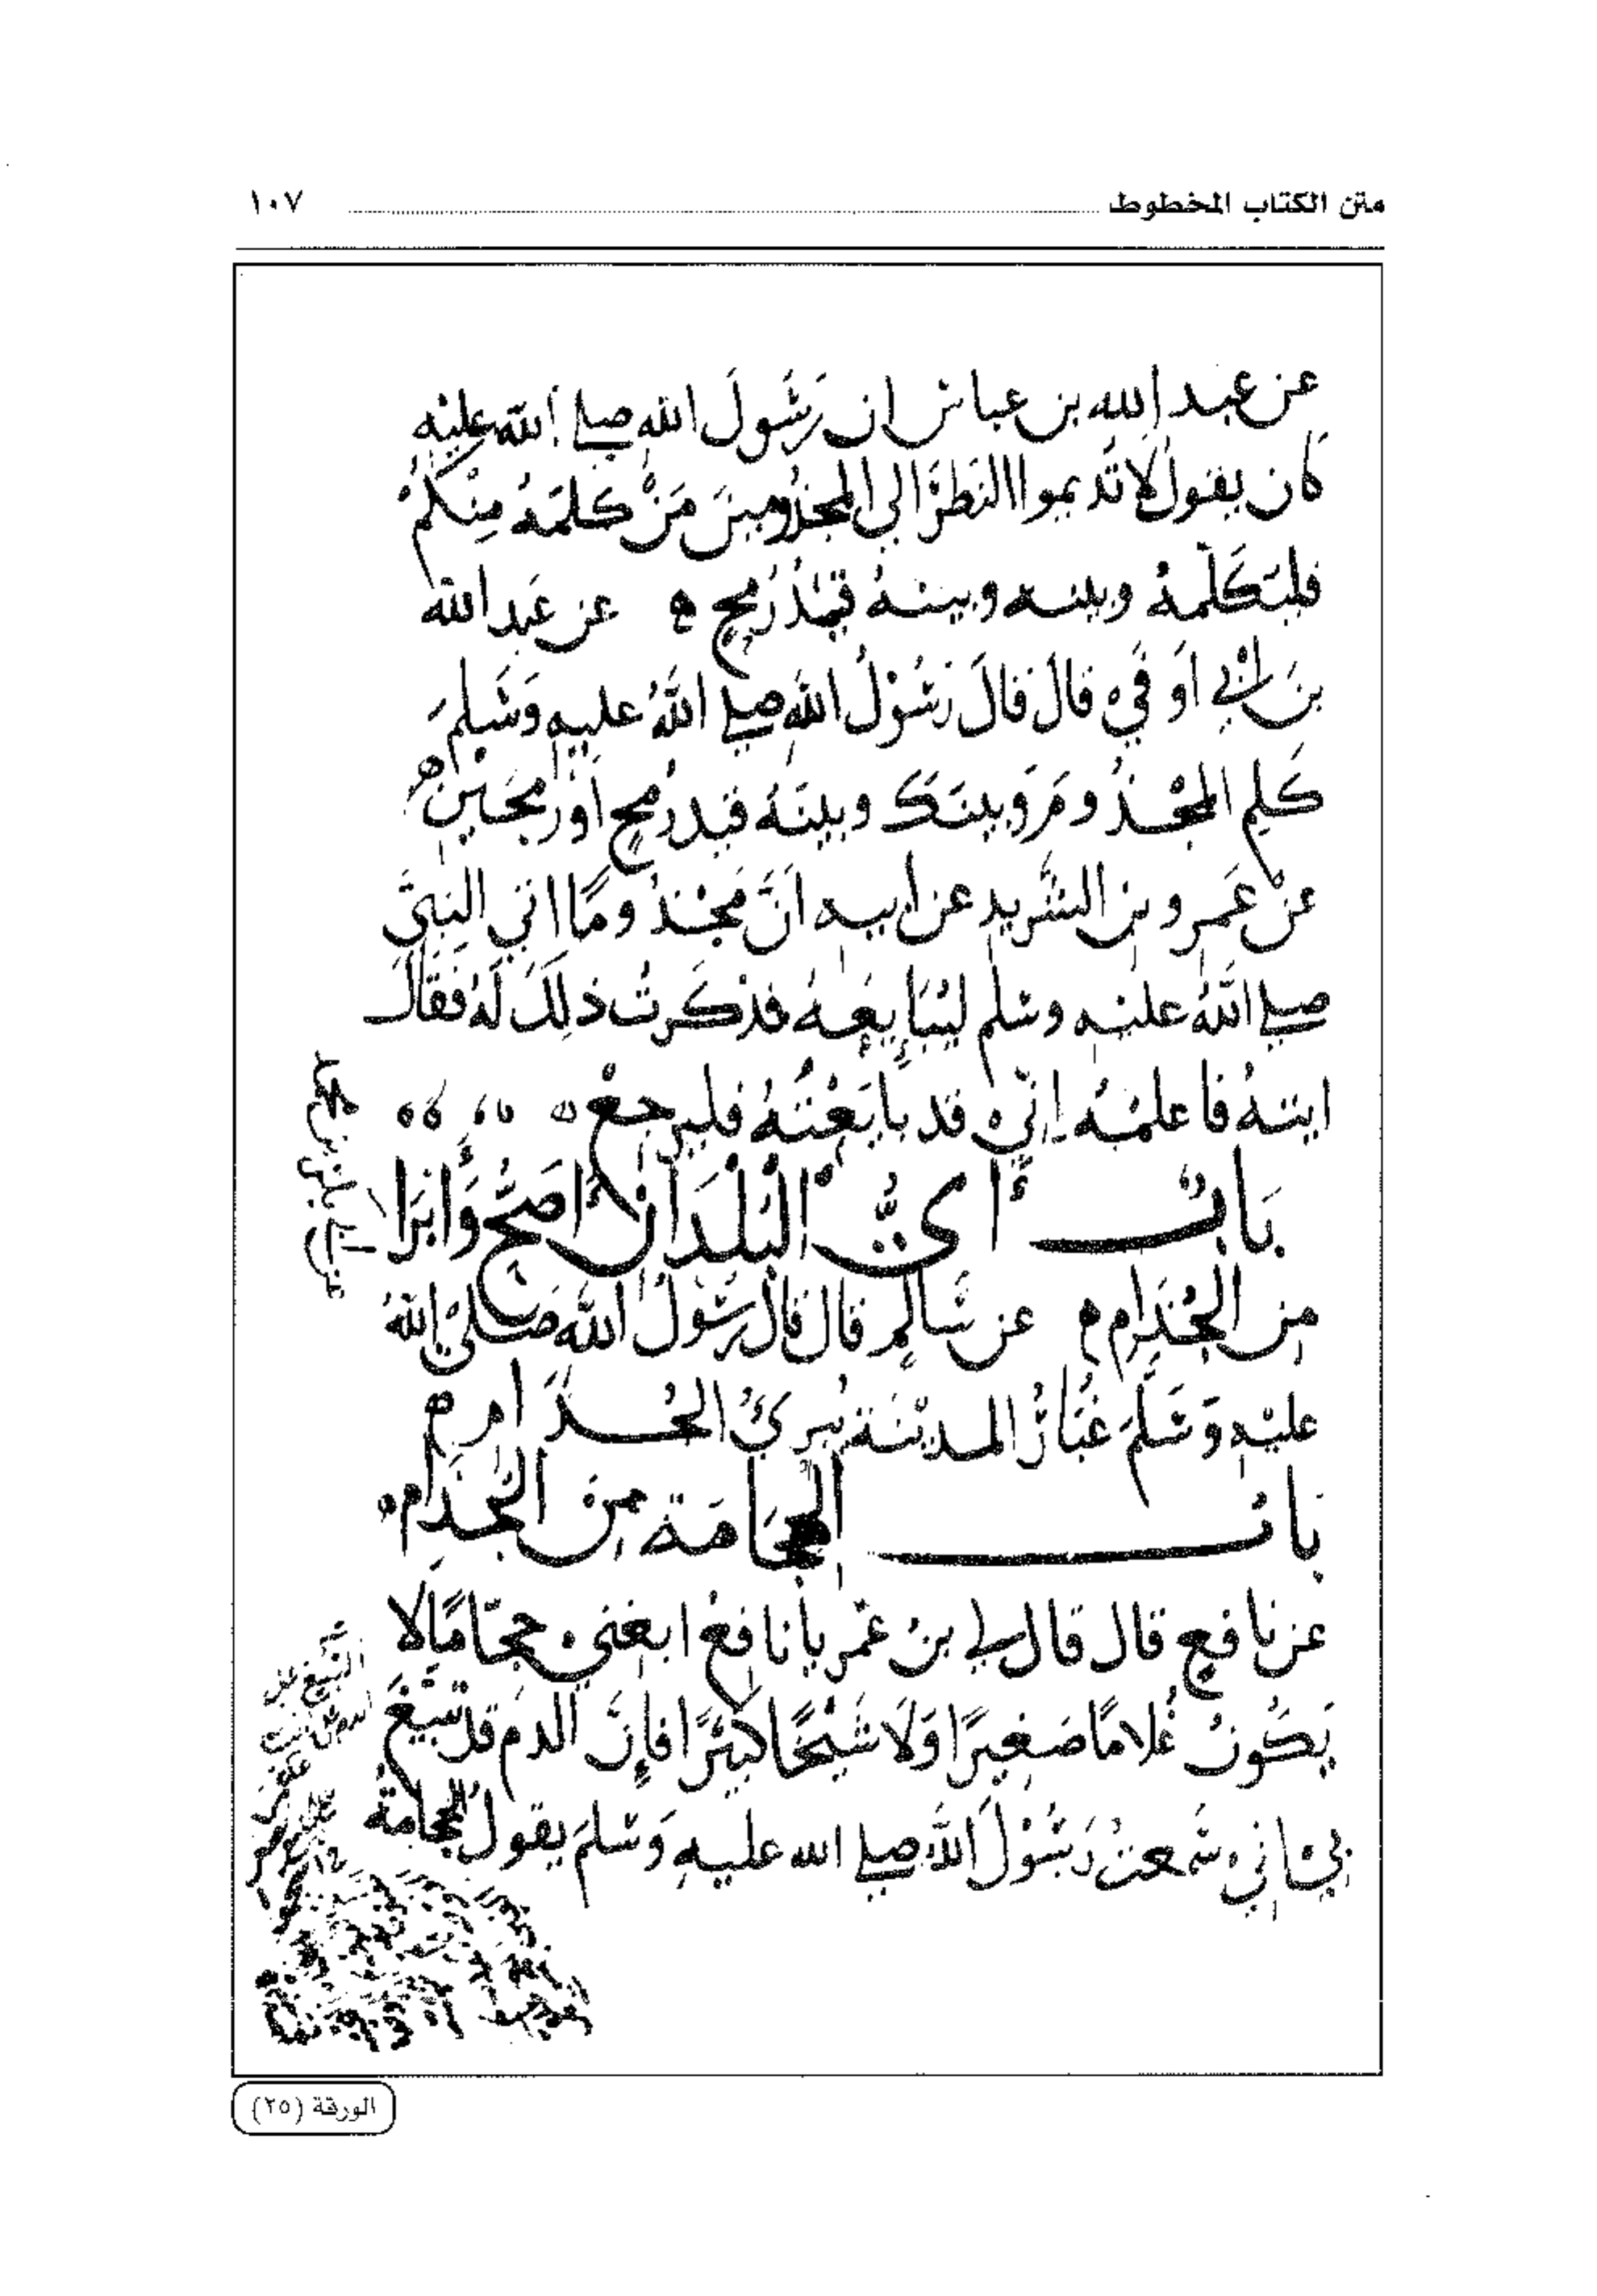 متن الكتاب المخطوط ١٠٧
عن عبد الله بن عباس ان رَسُولَ الله صلى الله عليه
كان يقول لا تُديموا النظرَ الى المجذومين مَنْ كلمَهُ مِنكُمْ
فليُكَلّمهُ وبينه وبينهُ قيدُ رُمحٍ ه عن عَبد الله
بن ابي أوفي قال قالَ رَسُوْلُ اللهِ صلى اللهُ عليهِ وَسَلمَ
كَلِم المجْذُومَ وَبينَكَ وبينَهُ قيد رُمحٍ أوْ رمحَينِ ه
عنْ عَمرو بن الشَّريدِ عن ابيه أنَّ مَجْذُومًا اتي النبيَّ
صلى اللهُ عليه وسلم ليُبَايِعَهُ فذكرتُ ذلِكَ لَهُ فقَال
ايتهُ فاعلمْهُ إنّي قد بايَعْتُهُ فليرجعْ
بَابُ أيُّ البُلدَانِ اَصَحُّ وَأبرَا
من الجُذَامِ ه عن سَالمٍ قال قال رسُولُ اللهِ صَلّى اللهُ
عليْهِ وَسَلَّمَ غُبَارُ المدِيْنَةِ يُبرِئُ الجُذَام ه
بَابُ الحِجَامَة من الجُذَام ه
عن نافعٍ قال قال لي بنُ عُمر يا نافعُ ابغني حجّامًا لا
يَكُونُ غُلامًا صَغِيرًا وَلَا شَيْخًا كبيرًا فإنَّ الدم قد تبَيَّغَ
بي اني سَمعتُ رَسُوْلَ اللهِ صلى الله عليهِ وَسلمَ يقولُ الحجامةُ
الورقة (٢٥)